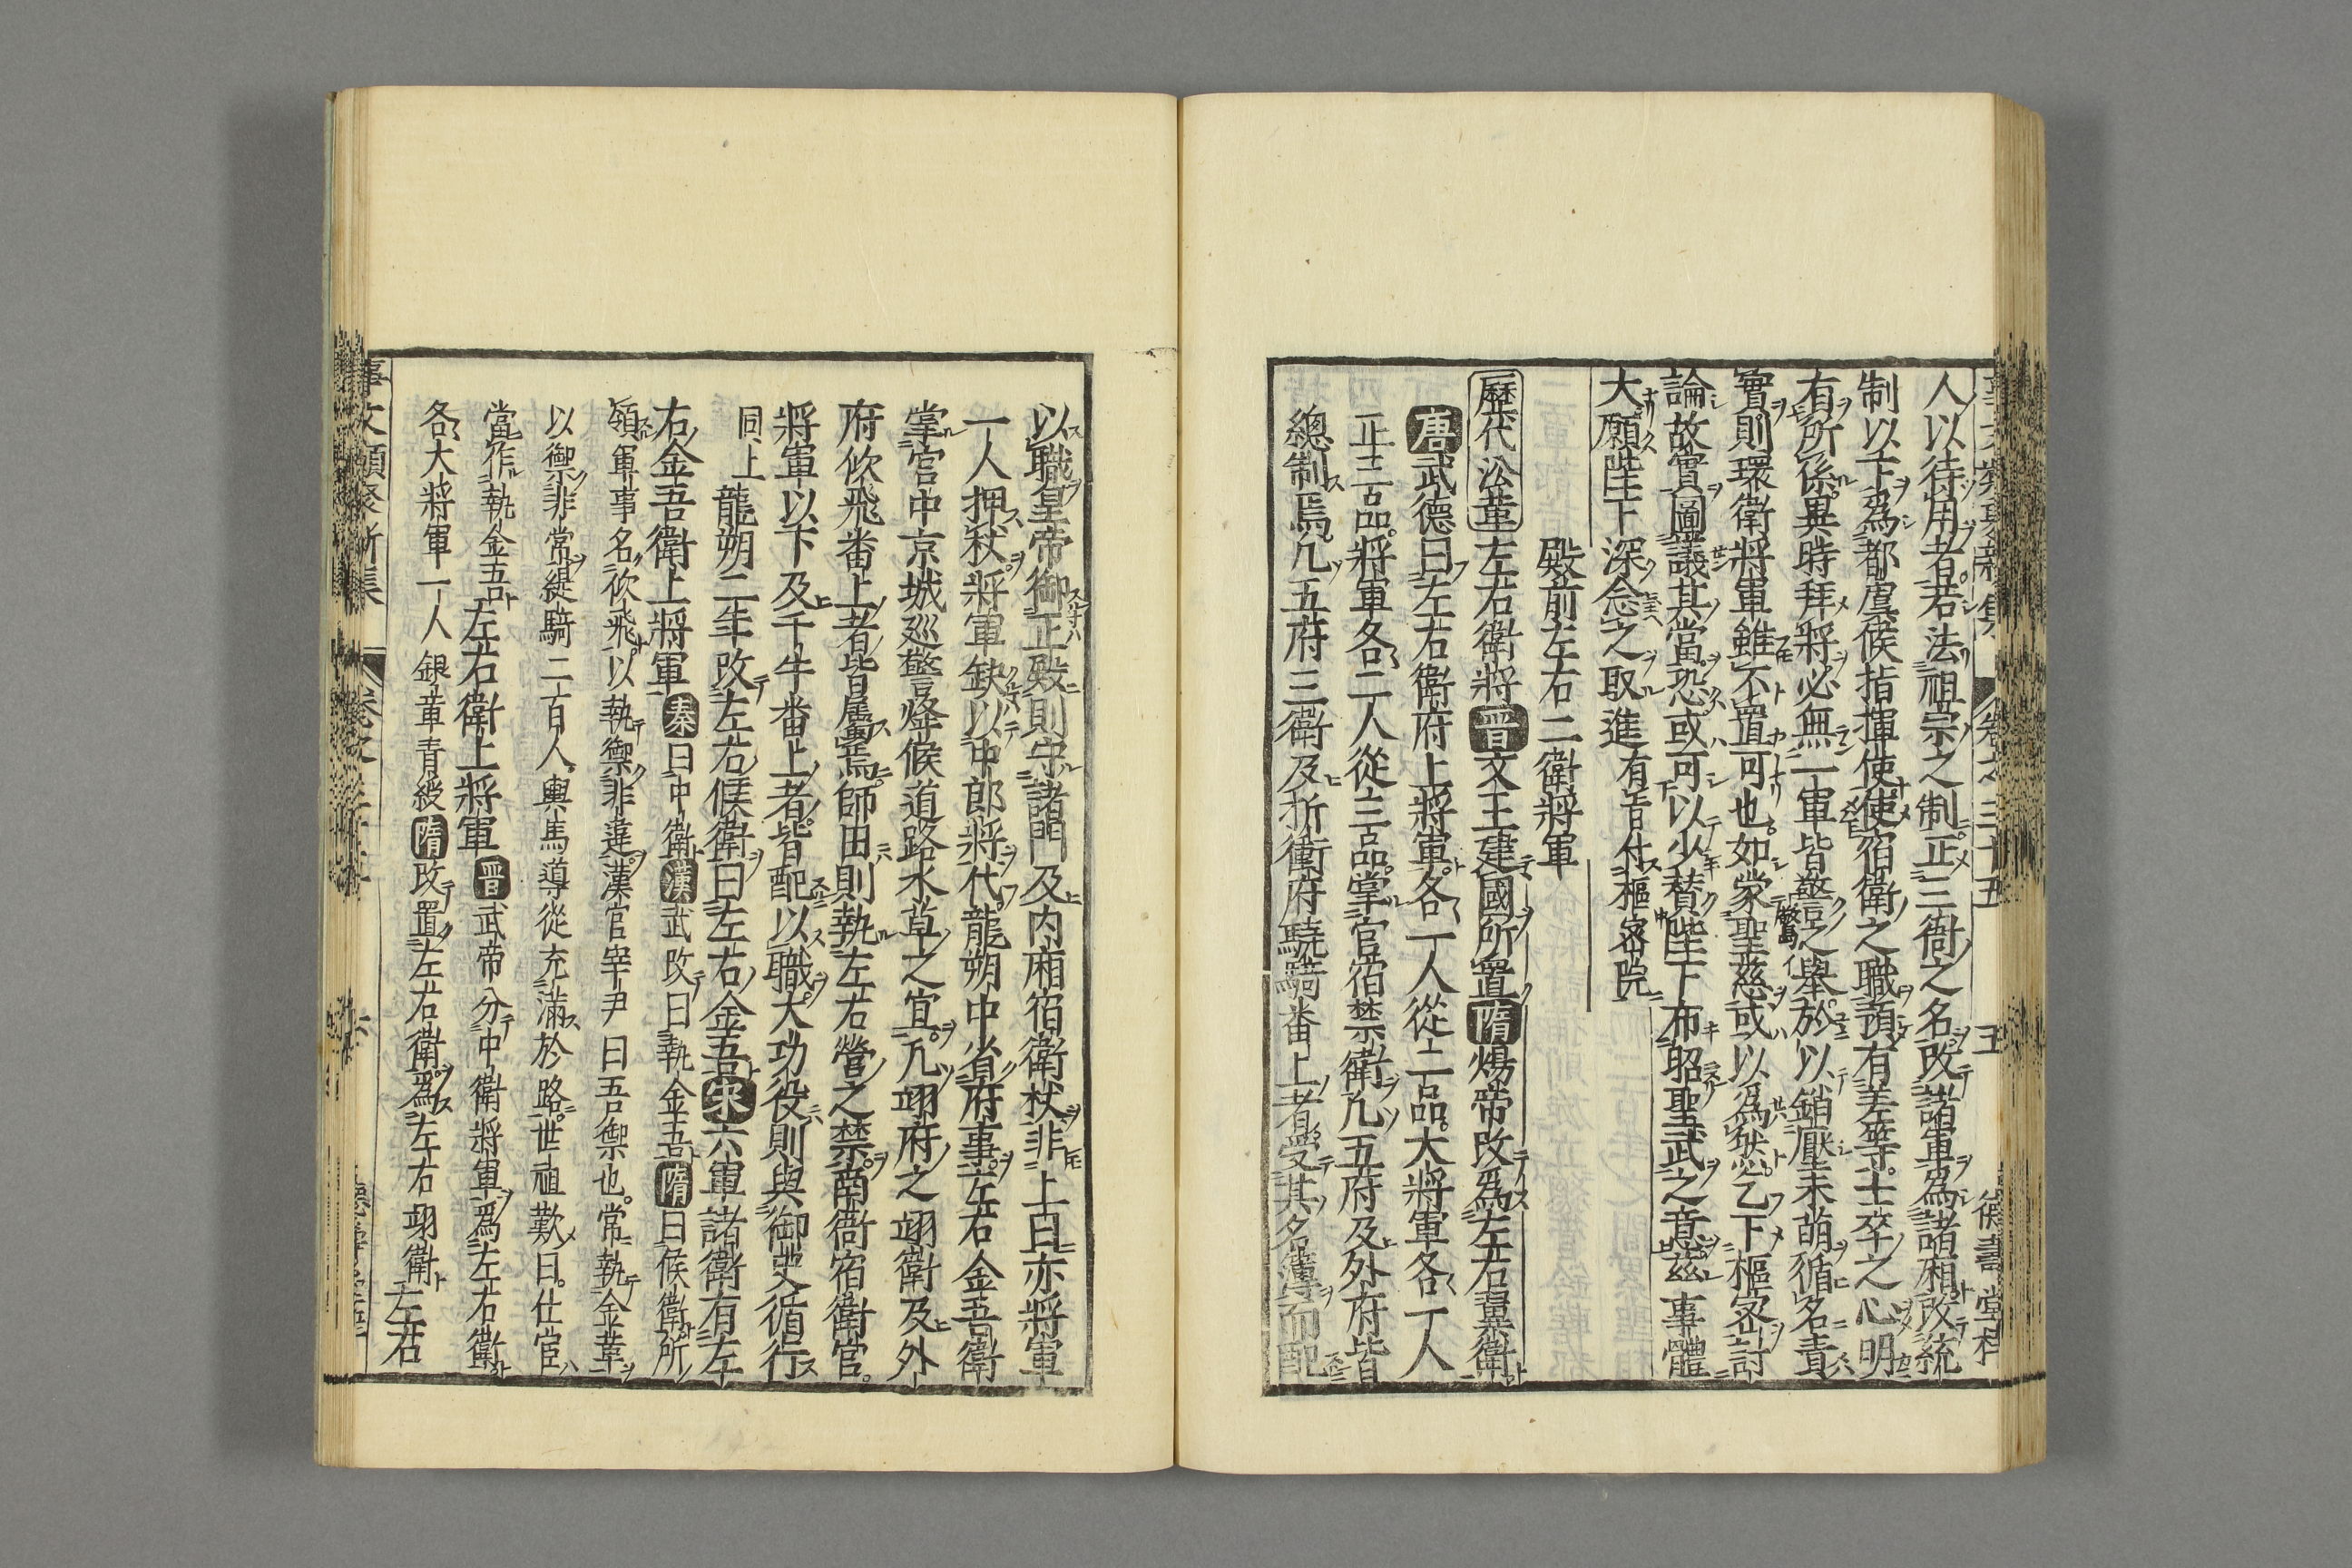 人以待用者若法祖宗之制正三衙之名改諸軍爲諸廂改統
制以下爲都虞候指揮使使宿衛之職預有差等士卒之心明
有所係異時拜將必無一軍皆驚之舉於以銷壓未萌循名責
實則環衛將軍雖不置可也如蒙聖慈或以爲然乞下樞密討
論故實圖議其當恐或可以少賛陛下布昭聖武之意茲事體
大願陛下深念之取進有旨付樞密院
殿前左右二衛將軍
歷代沿革左右衛將晋文王建國所置隋煬帝改爲左右翼衛
唐武德曰左右衛府上將軍各一人從二品大將軍各一人
正三品將軍各二人從三品掌官宿禁衛凡五府及外府皆
總制焉凡五府三衛及折衝府驍騎番上者受其名簿而配
以職皇帝御正殿則守諸門及内廂宿衛杖非上日亦將軍
一人押杖將軍缺以中郎將代龍朔中省府事左右金吾衛
掌宮中京城巡警烽候道路水草之宜凡翊府之翊衛及外
府佽飛番上者皆属焉師田則執左右營之禁南衙宿衛官
將軍以下及千牛番上者皆配以職大功役則與御史循行
同上龍朔二年改左右候衛曰左右金吾宋六軍諸衛有左
右金吾衛上將軍秦曰中衛漢武改曰執金吾隋曰候衛所
領軍事名佽飛以執禦非違漢官宰尹曰吾禦也常執金革
以禦非常緹騎二百人輿馬導從充滿於路世祖歎曰仕宦
當作執金吾左右衛上將軍晋武帝分中衛將軍爲左右衛
各大將軍一人銀章青綬隋改置左右衛爲左右翊衛左右